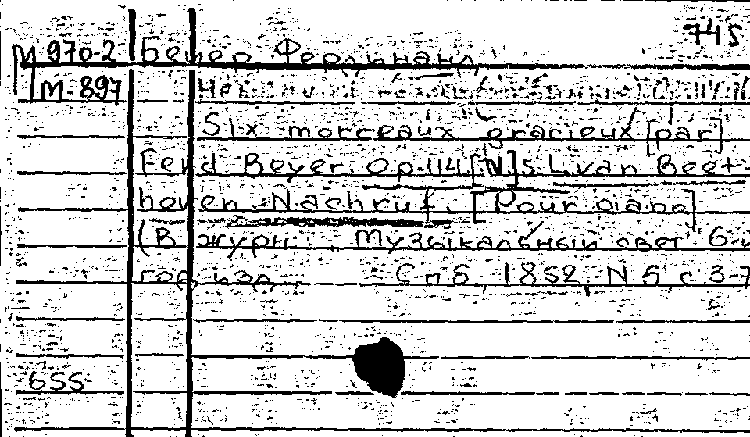 745
М 970-2 Бейер Фердинанд
М. 897
Six morceaux gracieux [par]
Ferd Beyer. Op. 114 [N] 5. L. van Beet-
hoven. Nachruf. [Pour piano]
(В журн. Музыкальный свет 6-й
год изд. Спб, 1852, N 5 с 3-7
655